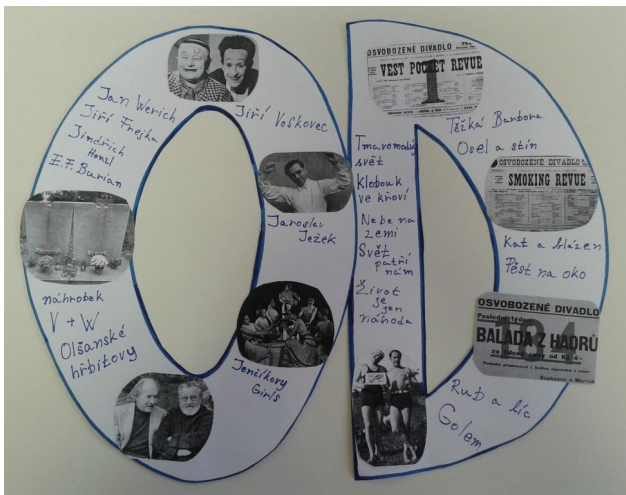 Jan Werich
Jiří Frejka
Jindřich
Honzl
E.F. Burian
Jiří Voskovec
Jaroslav
Ježek
náhrobek
V + W
Olšanské
hřbitovy
Jenčíkovy
Girls
OSVOBOZENÉ DIVADLO
VEST POCKET REVUE
Těžká Barbora
Osel a stín
Tmavomodrý
svět
Klobouk
ve křoví
Nebe na
zemi
Svět
patří
nám
Život
je
jen
náhoda
OSVOBOZENÉ DIVADLO
SMOKING REVUE
Kat a blázen
Pěst na oko
OSVOBOZENÉ DIVADLO
Poslední týden
BALADA Z HADRŮ
Rub a líc
Golem